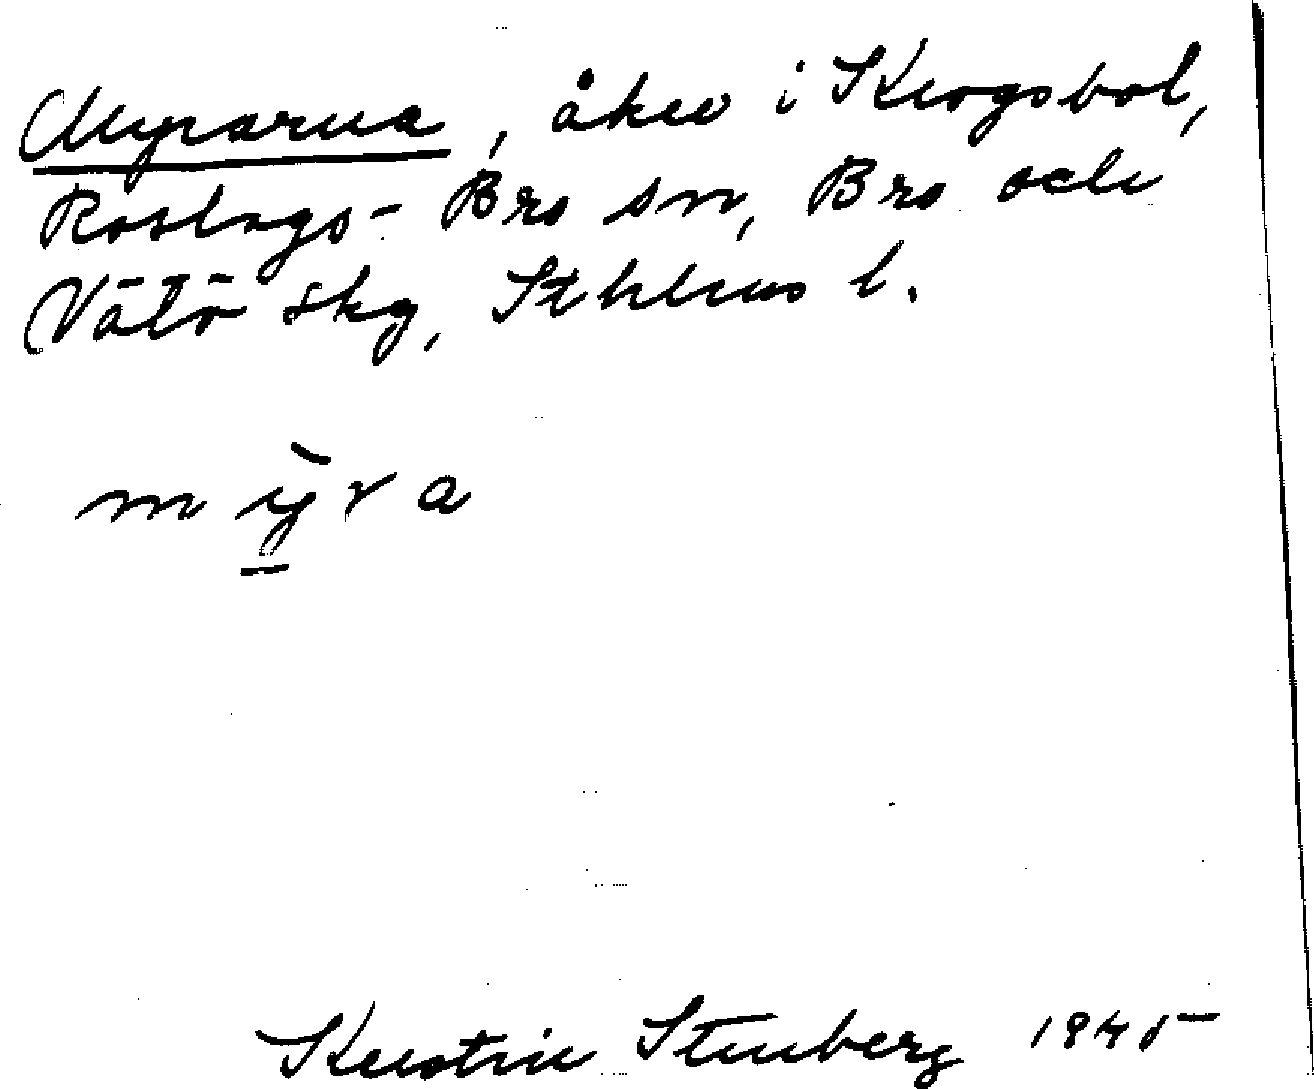 Myrarna, åker i Krogsbol,
Roslags-Bro sn, Bro och
Vätö skg, Sthlms l.
mỳra
Kerstin Stenberg 1945